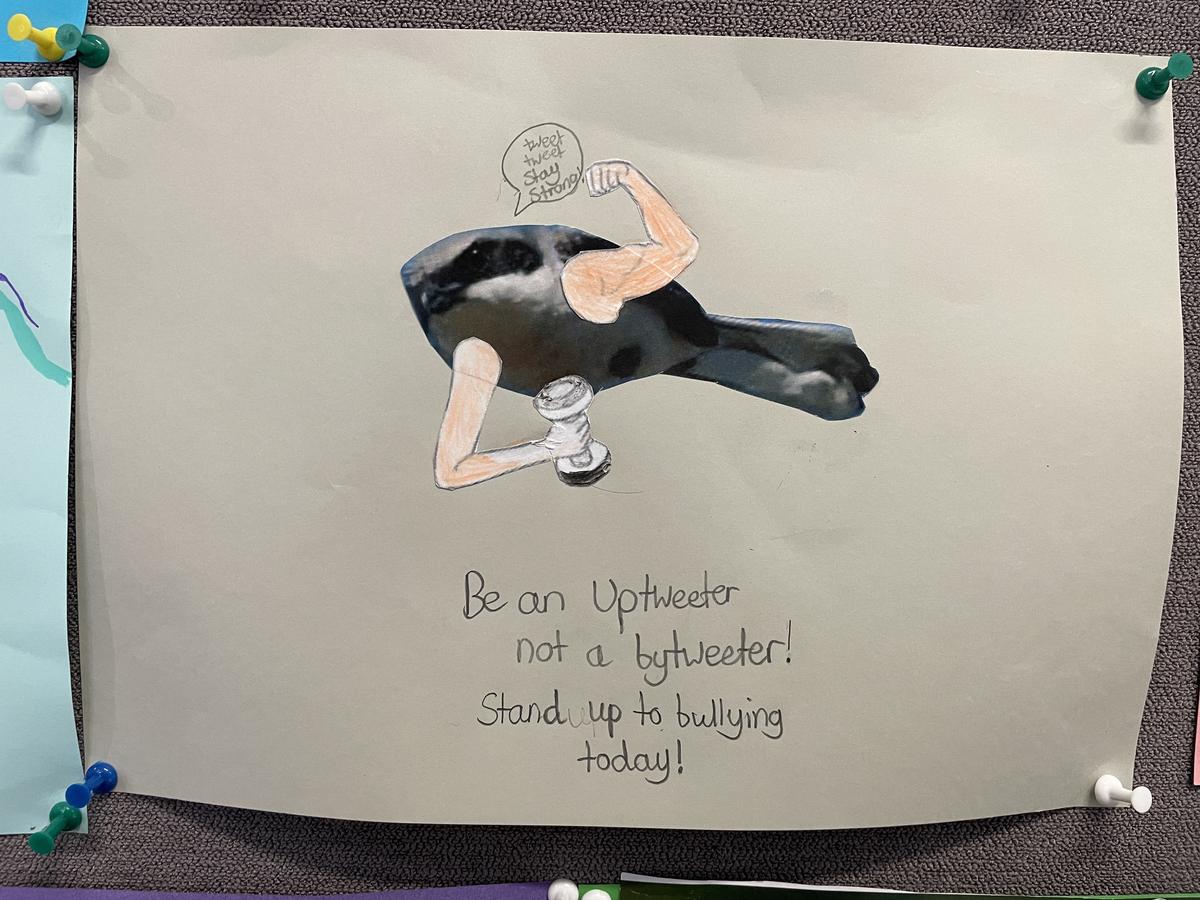 tweet
tweet
stay
strong!
Be an Uptweeter
not a bytweeter!
Stand up to bullying
today!